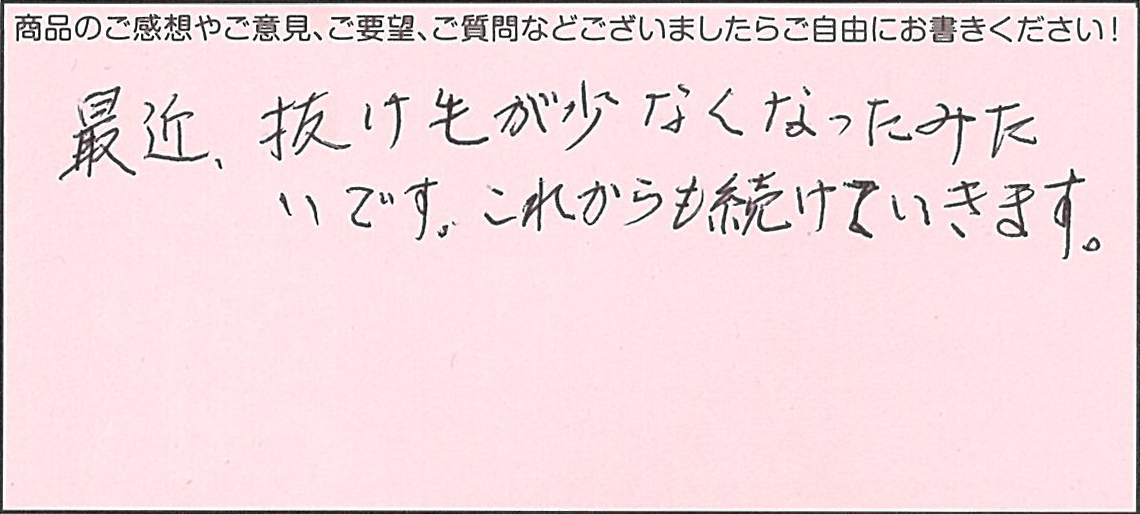 商品のご感想やご意見、ご要望、ご質問などございましたらご自由にお書きください！
最近、抜け毛が少なくなったみた
いです。これからも続けていきます。